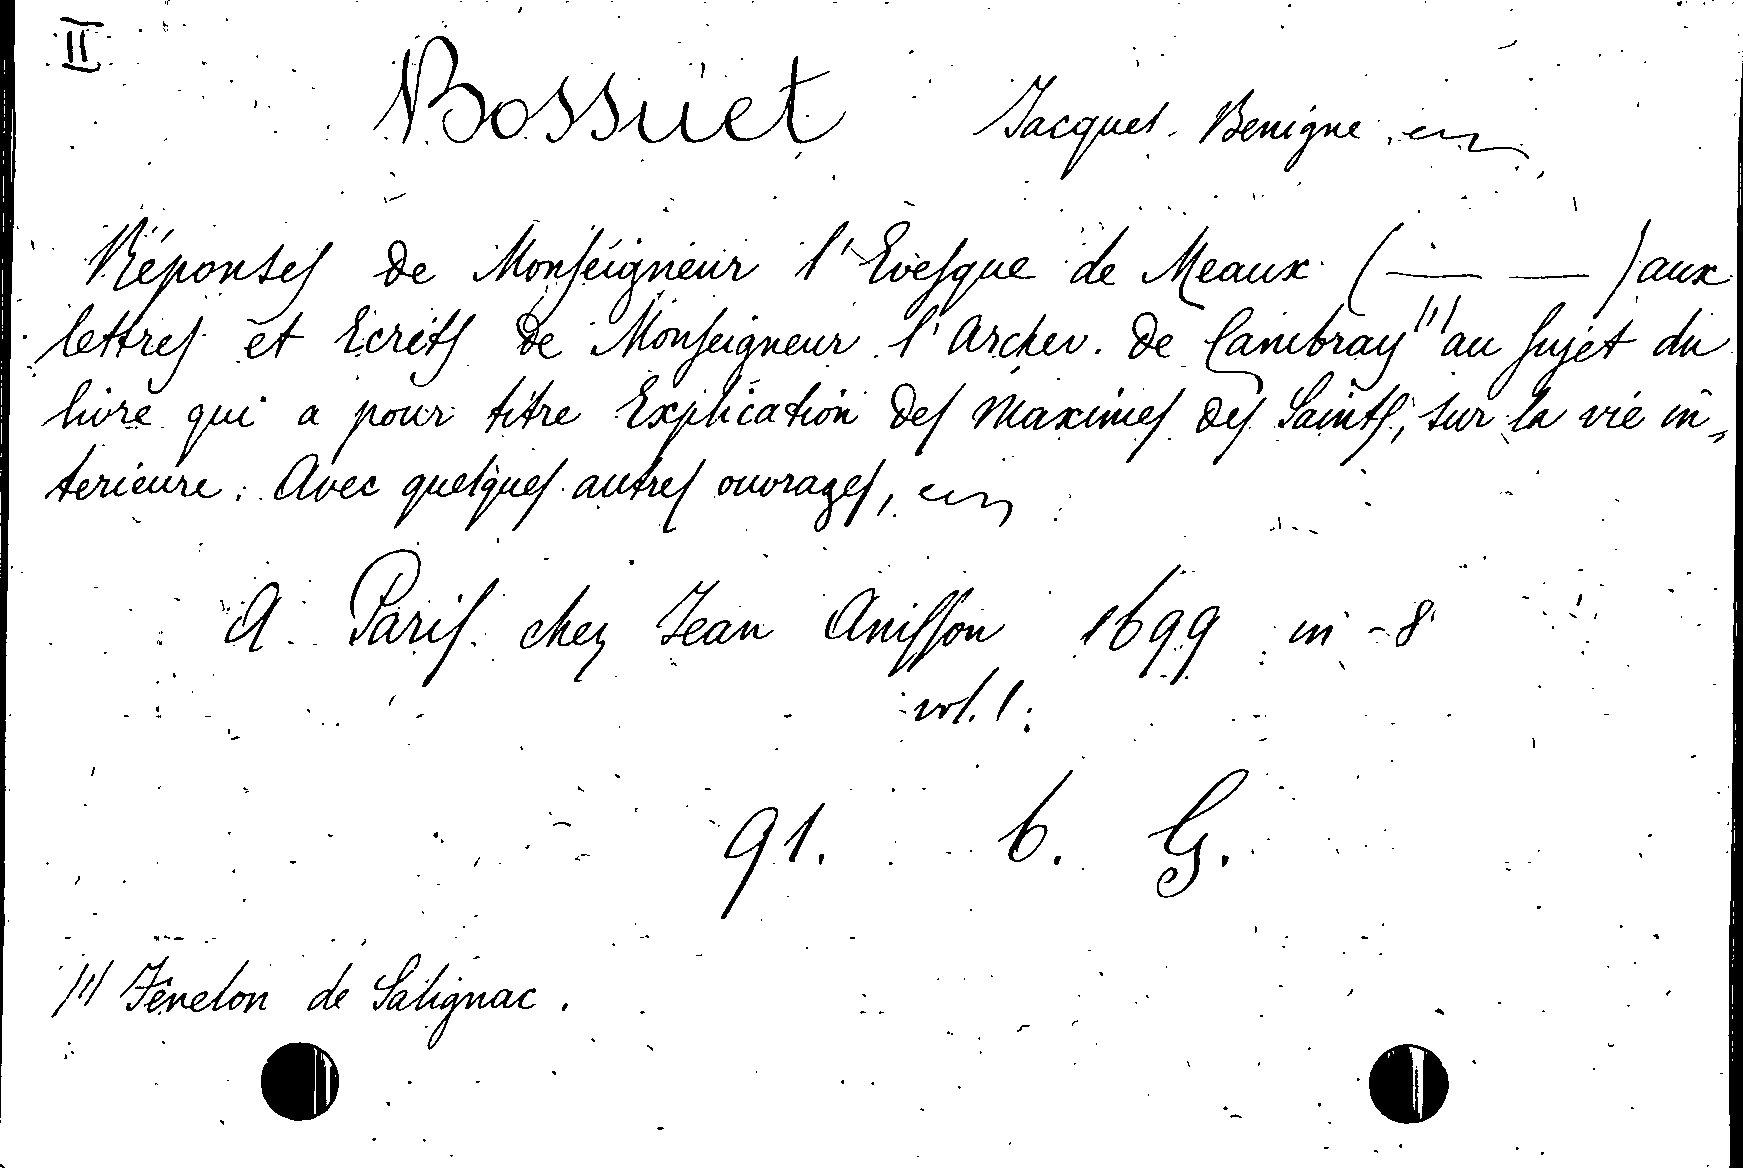 II
Bossuet Jacques Benigne
Réponses de Monseigneur l'Evesque de Meaux (— —) aux
lettres et Ecrits de Monseigneur l'Archev. de Cambray (1) au sujet du
livre qui a pour titre Explication des Maximes des Saints, sur la vie in-
terieure: Avec quelques autres ouvrages,
A Paris chez Jean Anisson 1699 in-8
vol. 1.
91. 6. G.
(1) Fénelon de Salignac.